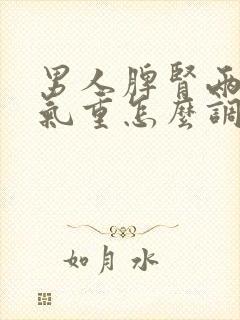 男人脾腎兩
氣重怎麼調
如月水